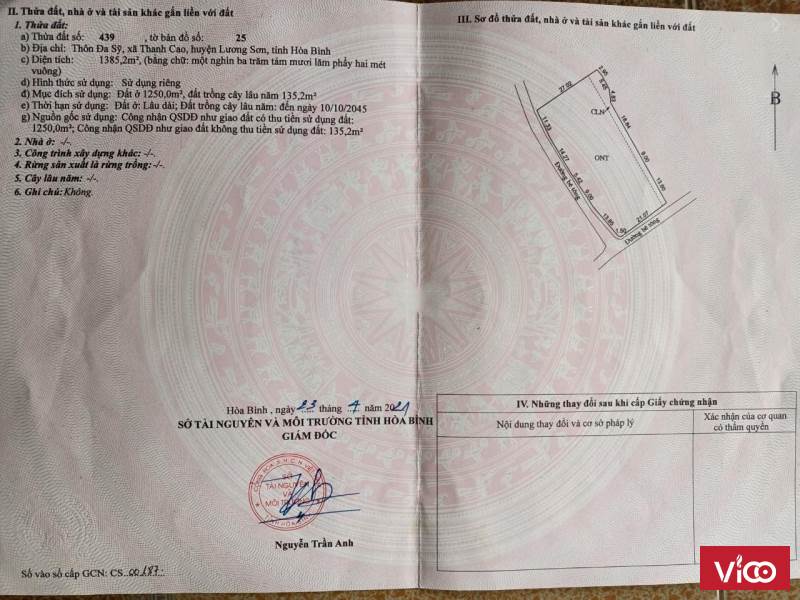 II. Thửa đất, nhà ở và tài sản khác gắn liền với đất
1. Thửa đất:
a) Thửa đất số: 439 , tờ bản đồ số: 25
b) Địa chỉ: Thôn Đa Sỹ, xã Thanh Cao, huyện Lương Sơn, tỉnh Hòa Bình
c) Diện tích: 1385,2m², (bằng chữ: một nghìn ba trăm tám mươi lăm phẩy hai mét
vuông)
d) Hình thức sử dụng: Sử dụng riêng
đ) Mục đích sử dụng: Đất ở 1250,0m², đất trồng cây lâu năm 135,2m²
e) Thời hạn sử dụng: Đất ở: Lâu dài; Đất trồng cây lâu năm: đến ngày 10/10/2045
g) Nguồn gốc sử dụng: Công nhận QSDĐ như giao đất có thu tiền sử dụng đất:
1250,0m²; Công nhận QSDĐ như giao đất không thu tiền sử dụng đất: 135,2m²
2. Nhà ở: -/-
3. Công trình xây dựng khác: -/-
4. Rừng sản xuất là rừng trồng: -/-
5. Cây lâu năm: -/-
6. Ghi chú: Không.
Hòa Bình , ngày 23 tháng 4 năm 2021
SỞ TÀI NGUYÊN VÀ MÔI TRƯỜNG TỈNH HÒA BÌNH
GIÁM ĐỐC
SỞ
TÀI NGUYÊN
VÀ
MÔI TRƯỜNG
Nguyễn Trần Anh
Số vào sổ cấp GCN: CS 00187
III. Sơ đồ thửa đất, nhà ở và tài sản khác gắn liền với đất
B
27.02
2.95
4.63
CLN
18.84
9.00
13.80
ONT
11.33
14.27
5.42
9.00
13.85
1.50
21.07
Đường bê tông
Đường bê tông
IV. Những thay đổi sau khi cấp Giấy chứng nhận
Nội dung thay đổi và cơ sở pháp lý
Xác nhận của cơ quan
có thẩm quyền
Vicoo